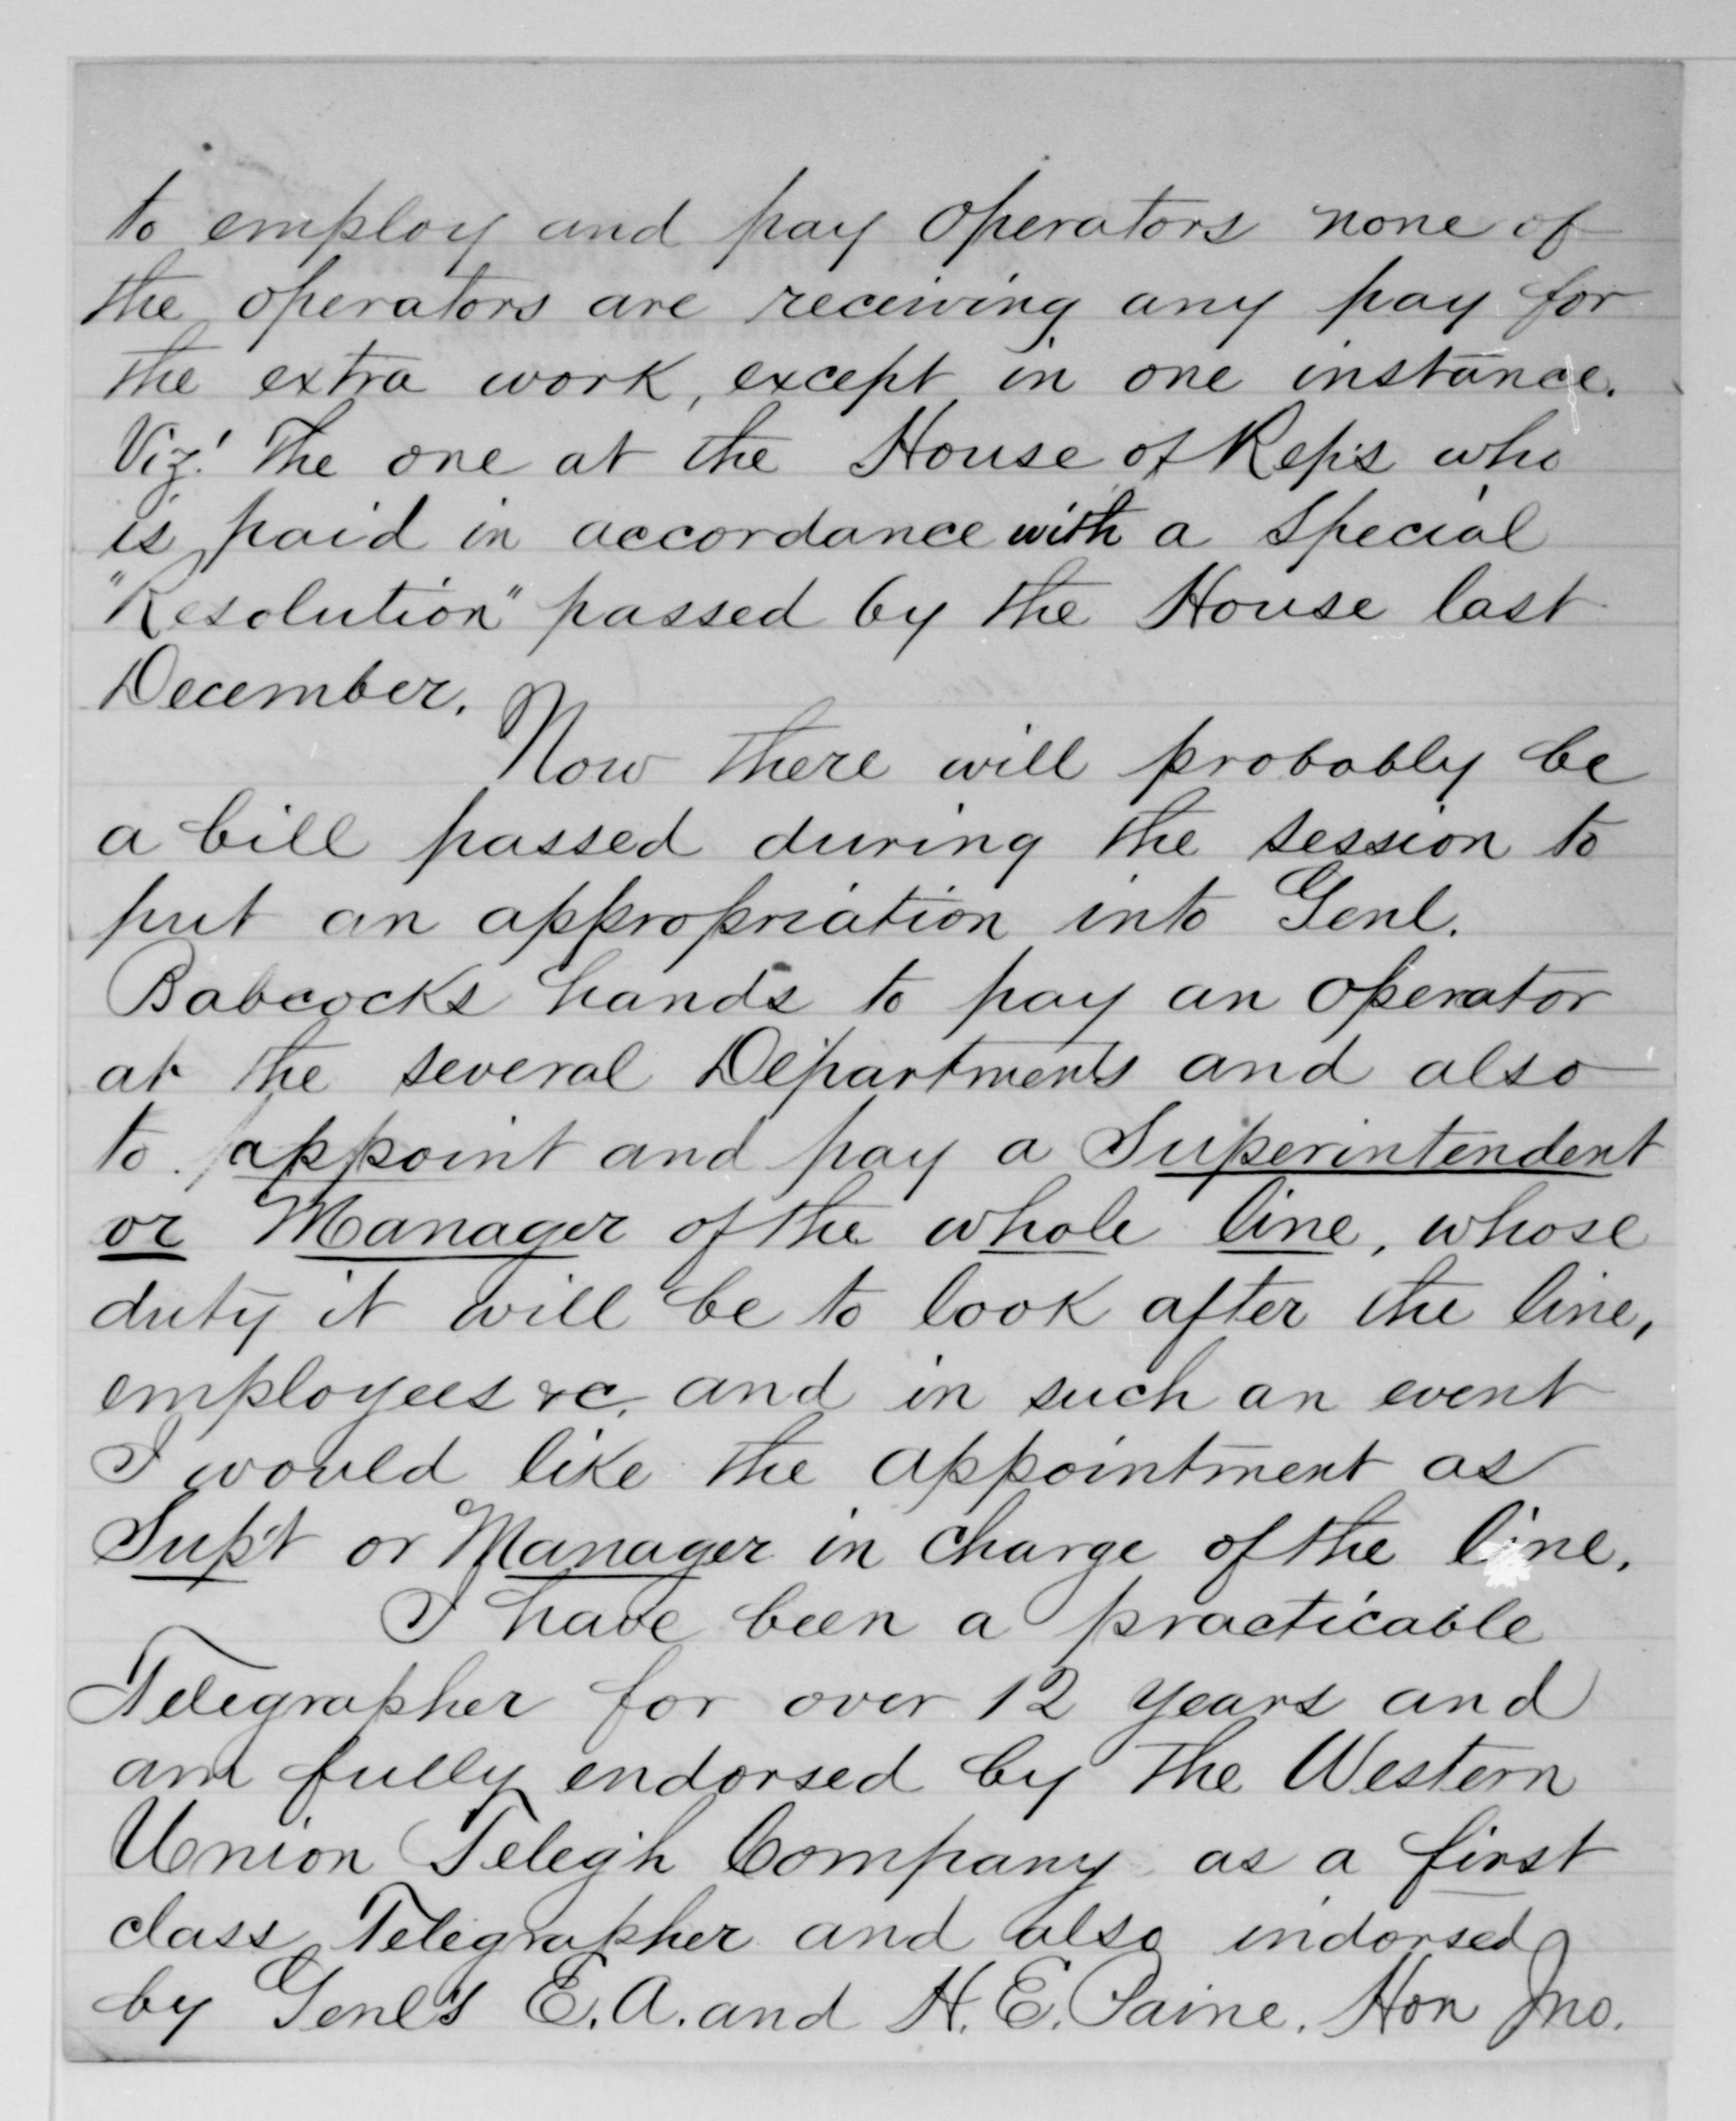 to employ and pay operators none of
the operators are receiving any pay for
the extra work, except in one instance.
Viz! The one at the House of Rep's who
is paid in accordance with a special
"Resolution" passed by the House last
December.
Now there will probably be
a bill passed during the session to
put an appropriation into Genl.
Babcocks hands to pay an operator
at the several Departments and also
to appoint and pay a Superintendent
or Manager of the whole line, whose
duty it will be to look after the line,
employees &c. and in such an event
I would like the appointment as
Sup't or Manager in charge of the line.
I have been a practicable
Telegrapher for over 12 years and
am fully endorsed by the Western
Union Telegh Company as a first
class Telegrapher and also indorsed
by Genl's E. A. and H. E. Paine. Hon Jno.